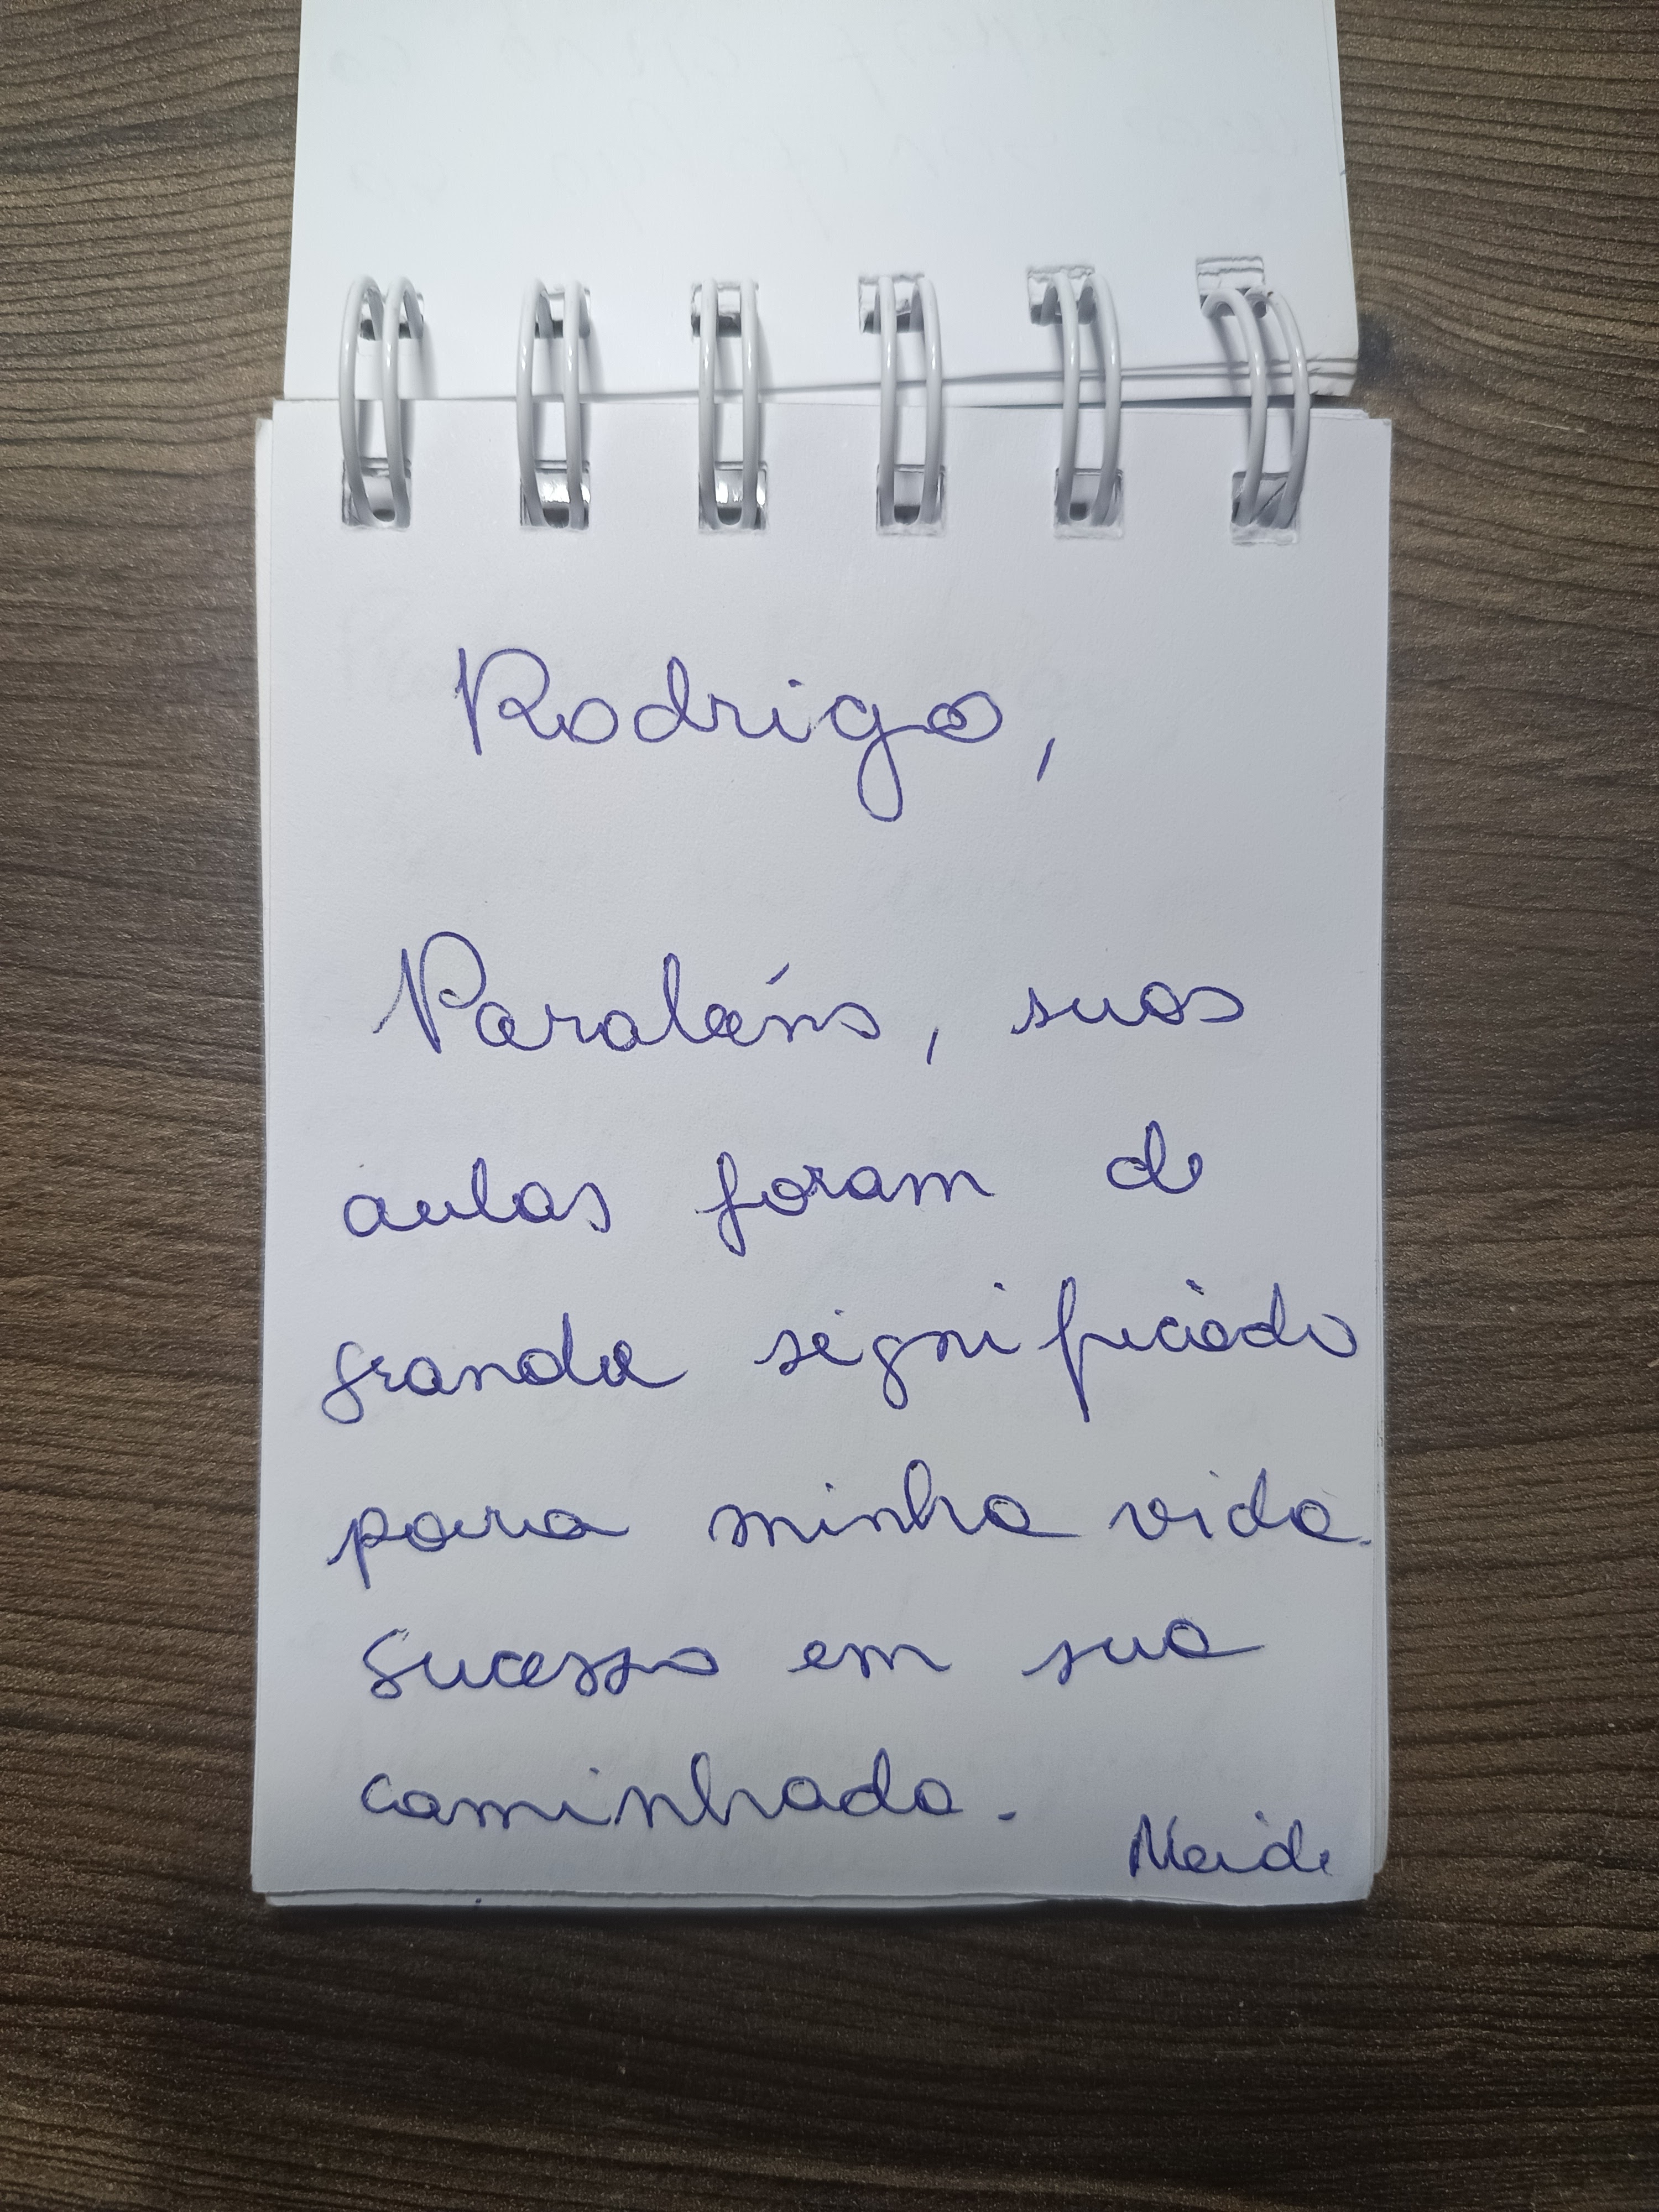 Rodrigo,
Parabéns, suas
aulas foram de
grande significado
para minha vida.
Sucesso em sua
caminhada.
Neide